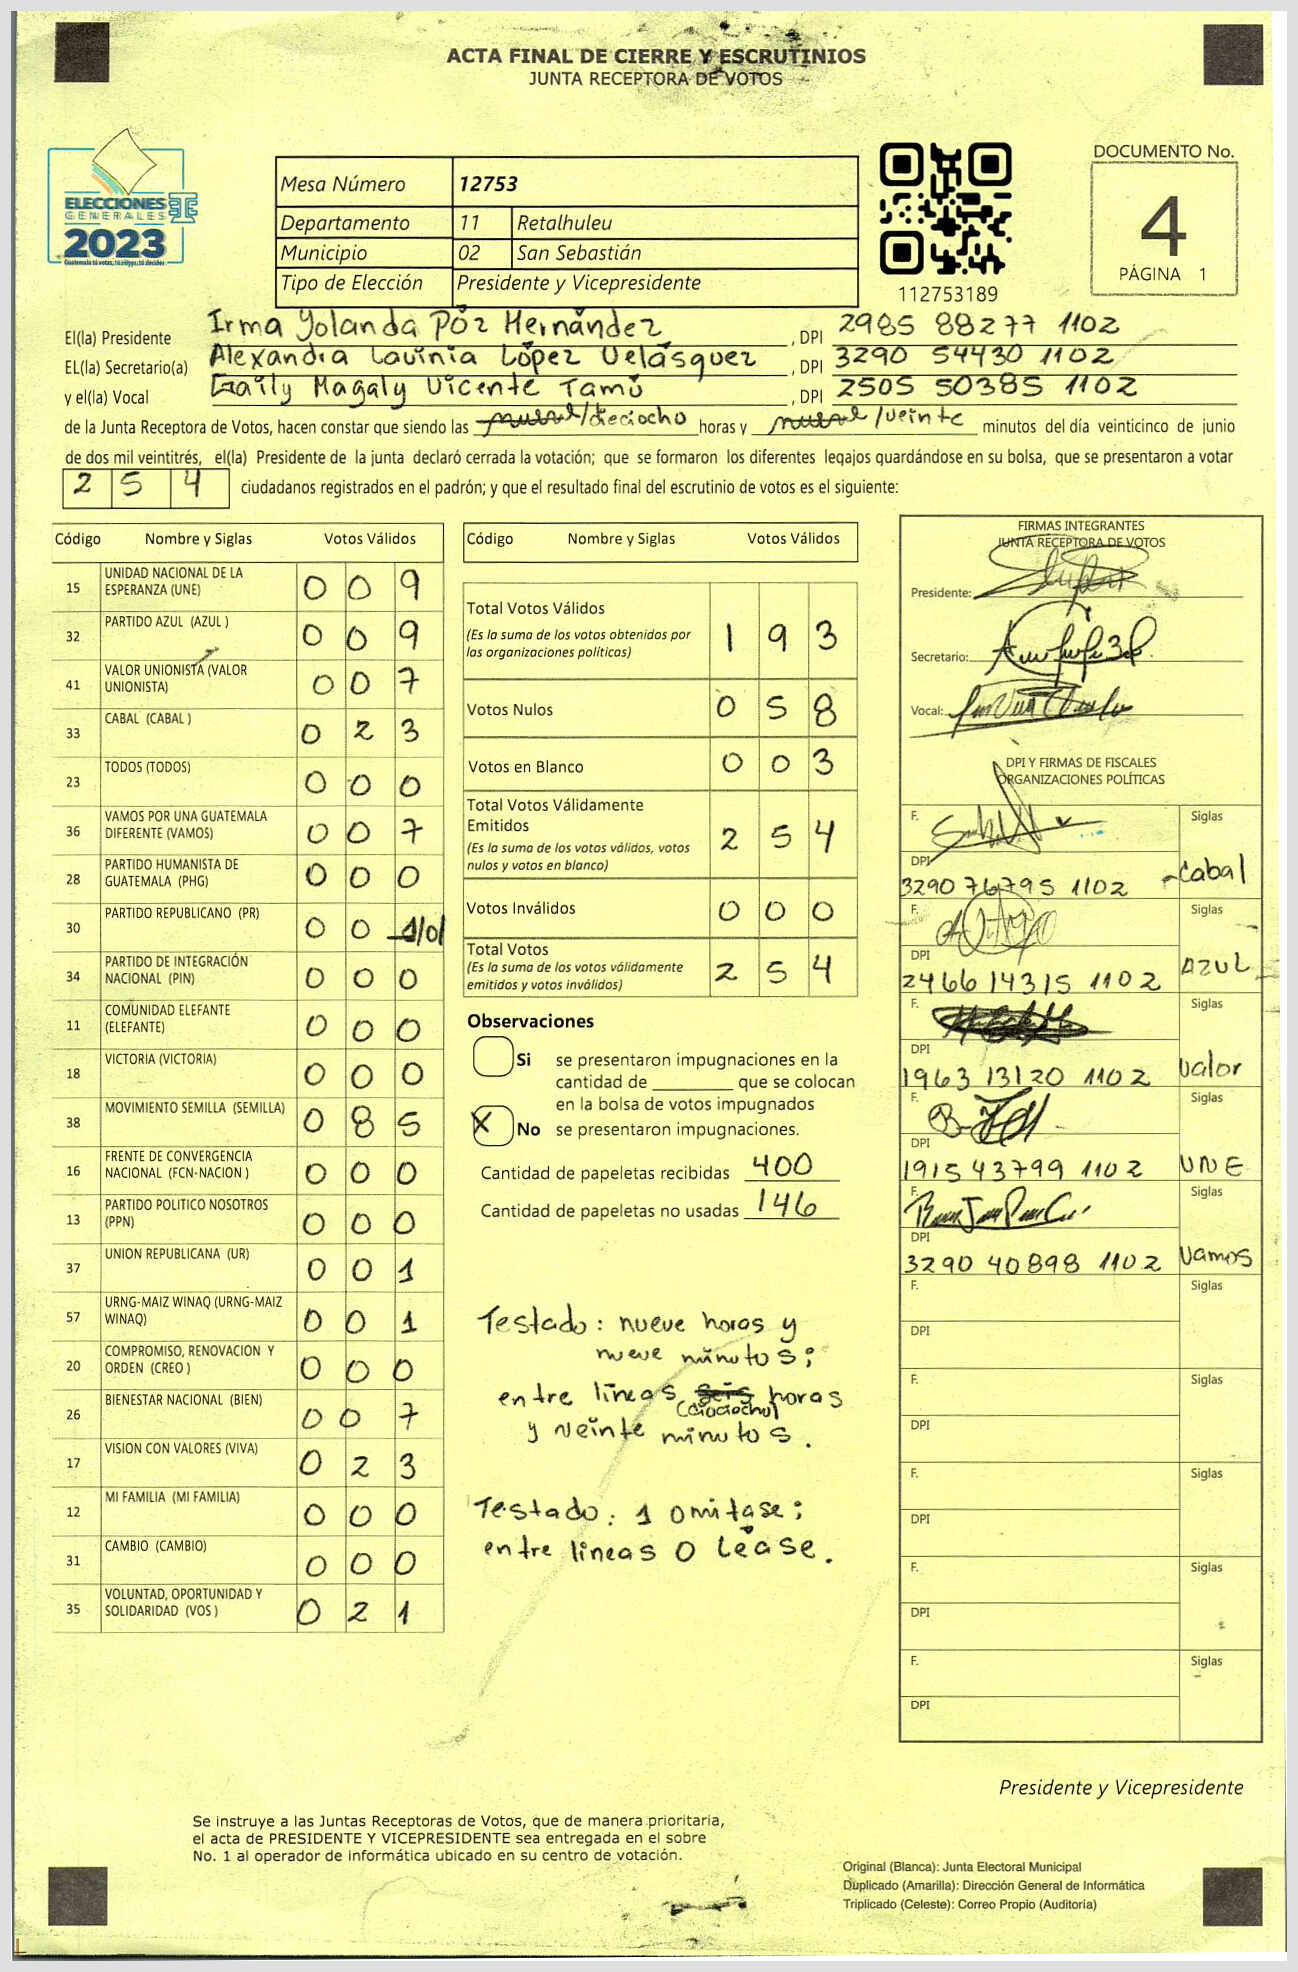 ACTA FINAL DE CIERRE Y ESCRUTINIOS
JUNTA RECEPTORA DE VOTOS
ELECCIONES
GENERALES
2023
Mesa Número 12753
Departamento 11 Retalhuleu
Municipio 02 San Sebastián
Tipo de Elección Presidente y Vicepresidente
112753189
DOCUMENTO No.
4
PÁGINA 1
El(la) Presidente Irma Yolanda Póz Hernández, DPI 2985 88277 1102
EL(la) Secretario(a) Alexandra Lavinia López Velásquez, DPI 3290 54430 1102
y el(la) Vocal Magaly Vicente Tamú, DPI 2505 50385 1102
de la Junta Receptora de Votos, hacen constar que siendo las nueve/dieciocho horas y nueve/veinte minutos del día veinticinco de junio
de dos mil veintitrés, el(la) Presidente de la junta declaró cerrada la votación; que se formaron los diferentes legajos guardándose en su bolsa, que se presentaron a votar
2 5 4 ciudadanos registrados en el padrón; y que el resultado final del escrutinio de votos es el siguiente:
Código Nombre y Siglas Votos Válidos
15 UNIDAD NACIONAL DE LA ESPERANZA (UNE) 0 0 9
32 PARTIDO AZUL (AZUL ) 0 0 9
41 VALOR UNIONISTA (VALOR UNIONISTA) 0 0 7
33 CABAL (CABAL ) 0 2 3
23 TODOS (TODOS) 0 0 0
36 VAMOS POR UNA GUATEMALA DIFERENTE (VAMOS) 0 0 7
28 PARTIDO HUMANISTA DE GUATEMALA (PHG) 0 0 0
30 PARTIDO REPUBLICANO (PR) 0 0 1/0/
34 PARTIDO DE INTEGRACIÓN NACIONAL (PIN) 0 0 0
11 COMUNIDAD ELEFANTE (ELEFANTE) 0 0 0
18 VICTORIA (VICTORIA) 0 0 0
38 MOVIMIENTO SEMILLA (SEMILLA) 0 8 5
16 FRENTE DE CONVERGENCIA NACIONAL (FCN-NACION ) 0 0 0
13 PARTIDO POLITICO NOSOTROS (PPN) 0 0 0
37 UNION REPUBLICANA (UR) 0 0 1
57 URNG-MAIZ WINAQ (URNG-MAIZ WINAQ) 0 0 1
20 COMPROMISO, RENOVACION Y ORDEN (CREO ) 0 0 0
26 BIENESTAR NACIONAL (BIEN) 0 0 7
17 VISION CON VALORES (VIVA) 0 2 3
12 MI FAMILIA (MI FAMILIA) 0 0 0
31 CAMBIO (CAMBIO) 0 0 0
35 VOLUNTAD, OPORTUNIDAD Y SOLIDARIDAD (VOS ) 0 2 1
Código Nombre y Siglas Votos Válidos
Total Votos Válidos 1 9 3
(Es la suma de los votos obtenidos por
las organizaciones políticas)
Votos Nulos 0 5 8
Votos en Blanco 0 0 3
Total Votos Válidamente
Emitidos 2 5 4
(Es la suma de los votos válidos, votos
nulos y votos en blanco)
Votos Inválidos 0 0 0
Total Votos 2 5 4
(Es la suma de los votos válidamente
emitidos y votos inválidos)
Observaciones
Si se presentaron impugnaciones en la
cantidad de ________ que se colocan
en la bolsa de votos impugnados
X No se presentaron impugnaciones.
Cantidad de papeletas recibidas 400
Cantidad de papeletas no usadas 146
Testado: nueve horas y
nueve minutos;
entre líneas seis horas
(dieciocho)
y veinte minutos.
Testado: 1 omitase;
entre lineas 0 léase.
FIRMAS INTEGRANTES
JUNTA RECEPTORA DE VOTOS
Presidente:
Secretario:
Vocal:
DPI Y FIRMAS DE FISCALES
ORGANIZACIONES POLÍTICAS
F. Siglas
DPI
3290 76795 1102 Cabal
F. Siglas
DPI
2466 14315 1102 AZUL
F. Siglas
DPI
1963 13120 1102 Valor
F. Siglas
DPI
1915 43799 1102 UNE
F. Siglas
DPI
3290 40898 1102 Vamos
F. Siglas
DPI
F. Siglas
DPI
F. Siglas
DPI
F. Siglas
DPI
F. Siglas
DPI
Presidente y Vicepresidente
Se instruye a las Juntas Receptoras de Votos, que de manera prioritaria,
el acta de PRESIDENTE Y VICEPRESIDENTE sea entregada en el sobre
No. 1 al operador de informática ubicado en su centro de votación.
Original (Blanca): Junta Electoral Municipal
Duplicado (Amarilla): Dirección General de Informática
Triplicado (Celeste): Correo Propio (Auditoría)